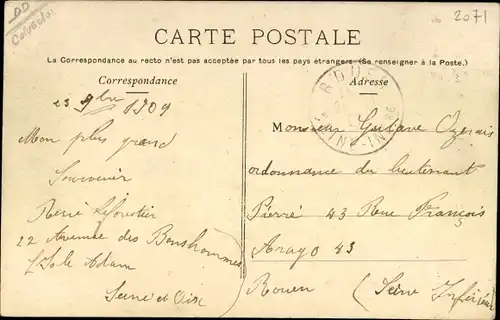 DD
Calvados
2071
CARTE POSTALE
La Correspondance au recto n'est pas acceptée par tous les pays étrangers (Se renseigner à la Poste.)
Correspondance
23 9bre 1909
Mon plus grand
Souvenir
René Leforestier
22 Avenue des Bonshommes
L'Isle Adam
Seine et Oise
Adresse
Monsieur Gustave
ordonnance du lieutenant
Pierré 43 Rue François
Arago 43
Rouen (Seine Inférieure